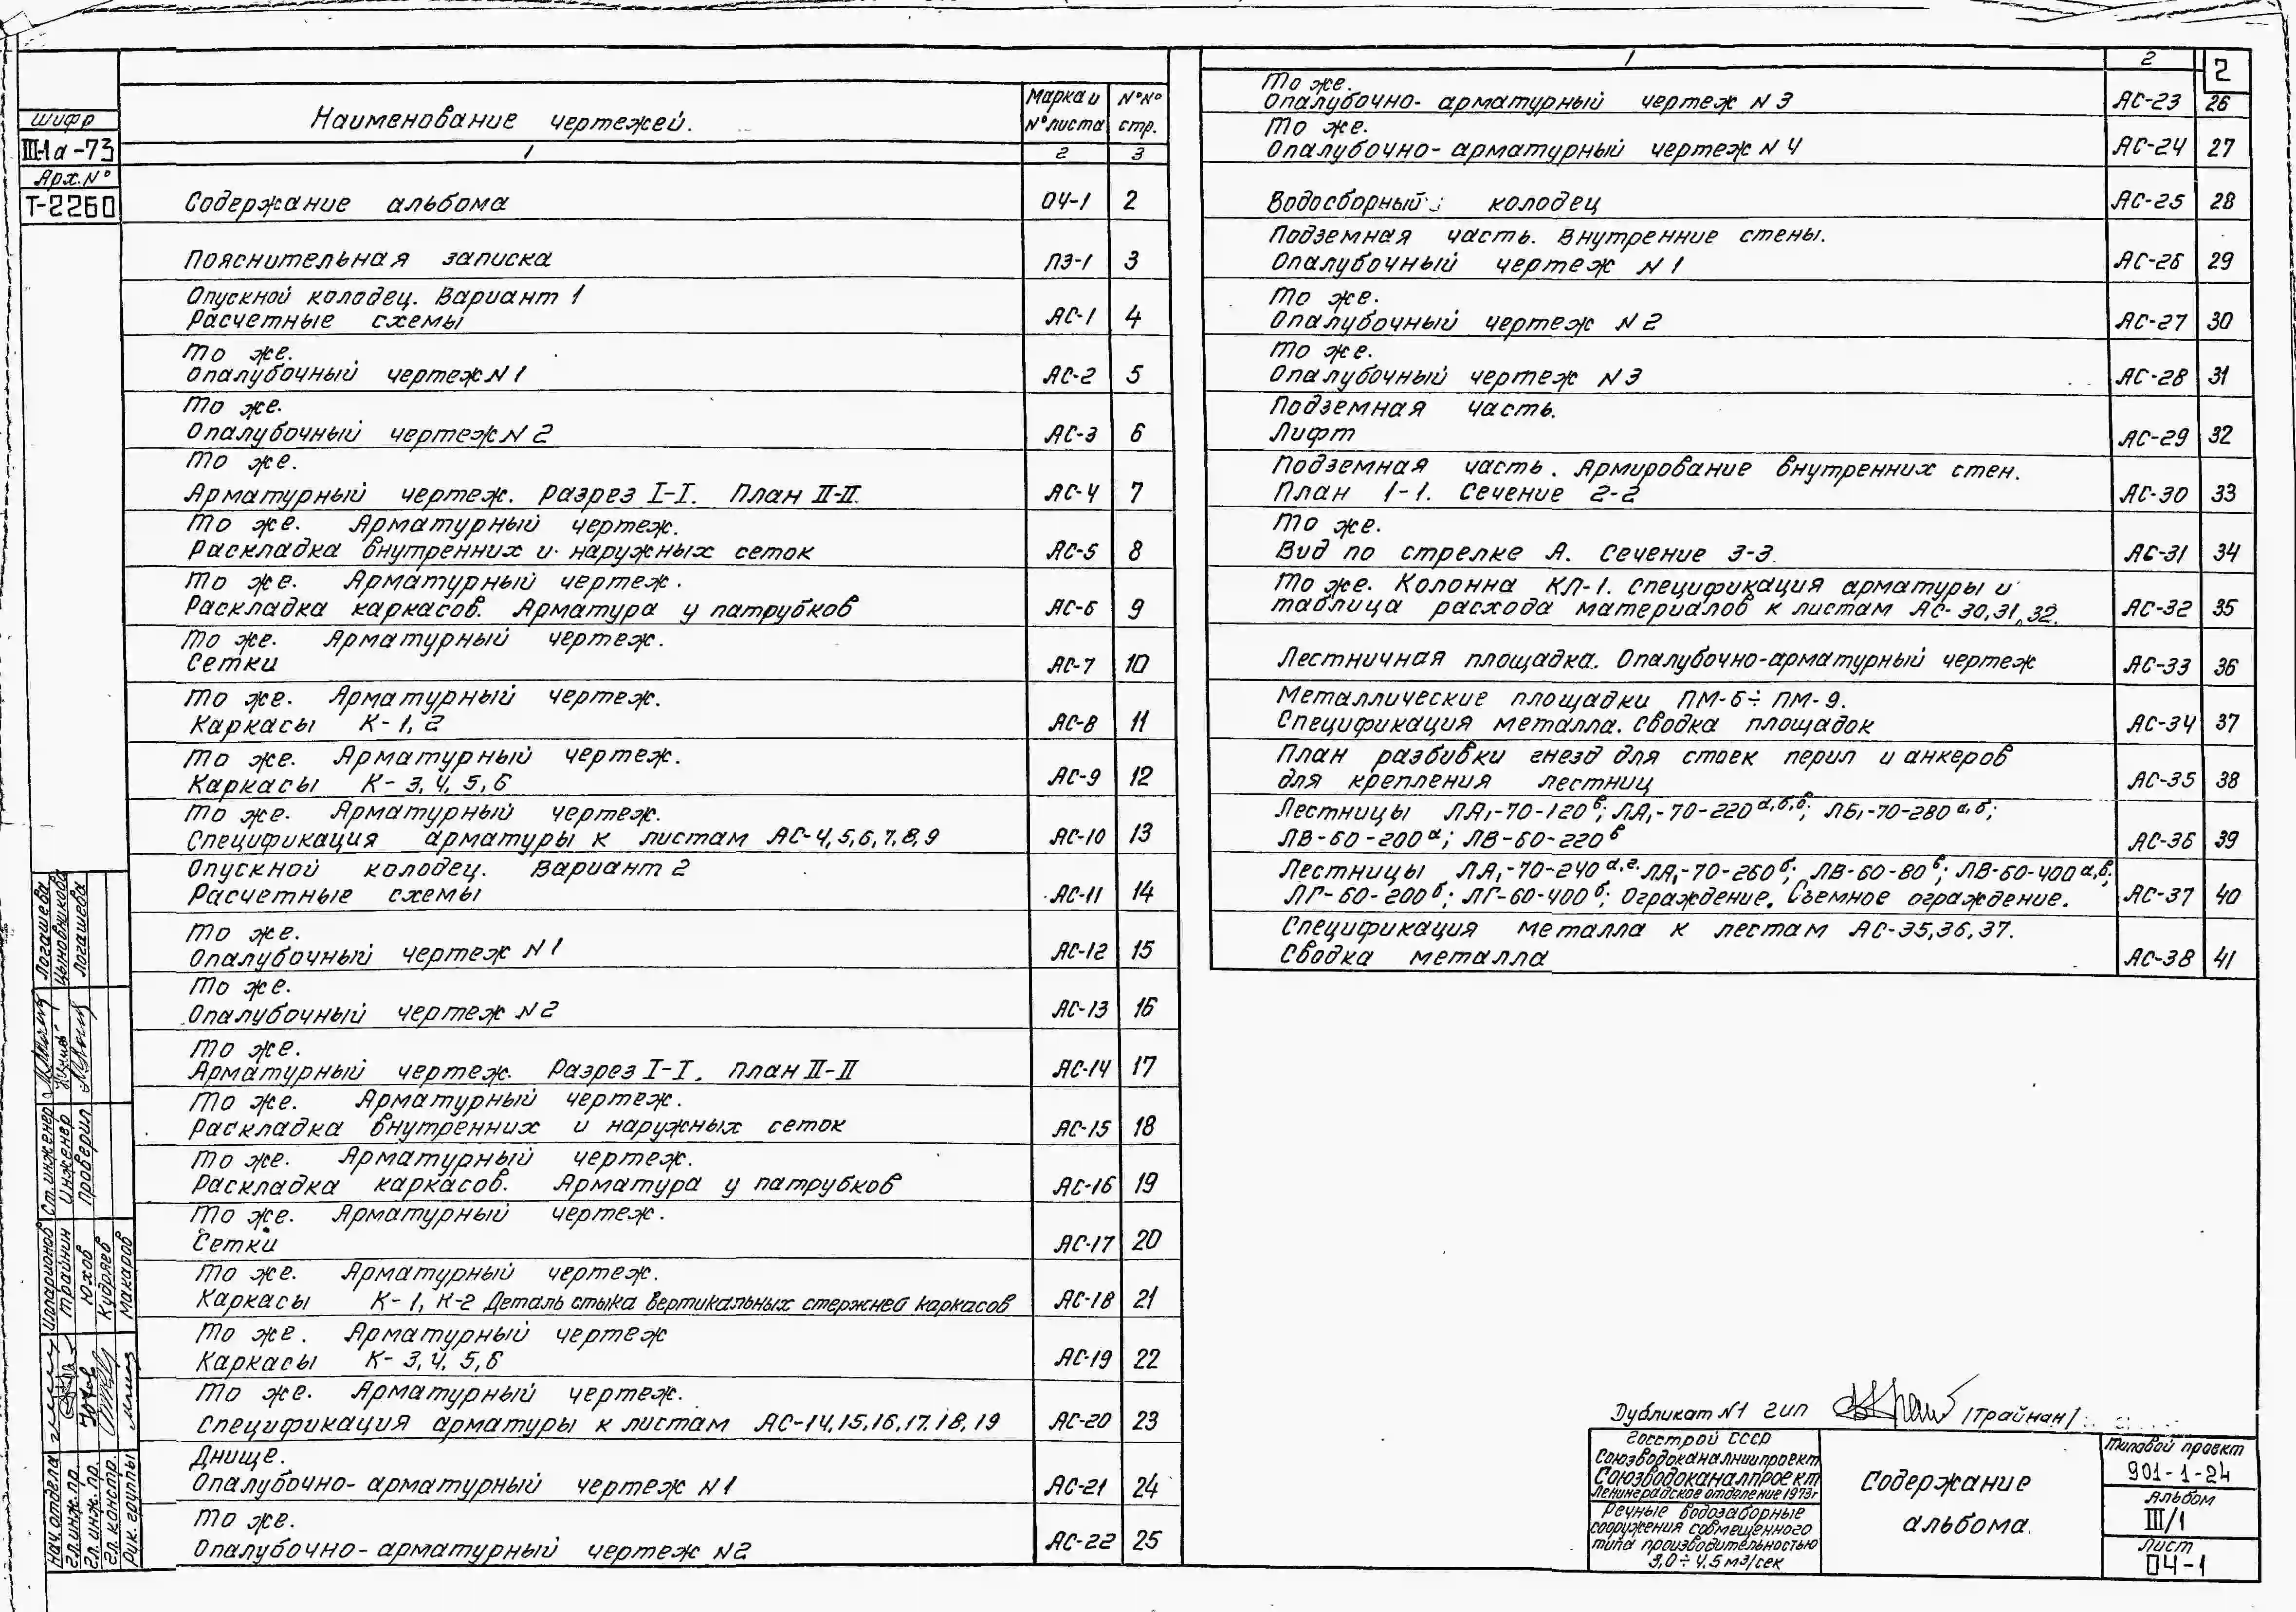 2
шифр
III-1а-73
Арх. N°
Т-2260
Наименование чертежей.
Марка и N° листа
N°N° стр.
1 2 3
Содержание альбома ОЧ-1 2
Пояснительная записка ПЗ-1 3
Опускной колодец. Вариант 1
Расчетные схемы АС-1 4
То же.
Опалубочный чертеж N 1 АС-2 5
То же.
Опалубочный чертеж N 2 АС-3 6
То же.
Арматурный чертеж. Разрез I-I. План II-II. АС-4 7
То же. Арматурный чертеж.
Раскладка внутренних и наружных сеток АС-5 8
То же. Арматурный чертеж.
Раскладка каркасов. Арматура у патрубков АС-6 9
То же. Арматурный чертеж.
Сетки АС-7 10
То же. Арматурный чертеж.
Каркасы К-1, 2 АС-8 11
То же. Арматурный чертеж.
Каркасы К-3, 4, 5, 6 АС-9 12
То же. Арматурный чертеж.
Спецификация арматуры к листам АС-4,5,6,7,8,9 АС-10 13
Опускной колодец. Вариант 2
Расчетные схемы АС-11 14
То же.
Опалубочный чертеж N 1 АС-12 15
То же.
Опалубочный чертеж N 2 АС-13 16
То же.
Арматурный чертеж. Разрез I-I. План II-II АС-14 17
То же. Арматурный чертеж.
Раскладка внутренних и наружных сеток АС-15 18
То же. Арматурный чертеж.
Раскладка каркасов. Арматура у патрубков АС-16 19
То же. Арматурный чертеж.
Сетки АС-17 20
То же. Арматурный чертеж.
Каркасы К-1, К-2 Деталь стыка вертикальных стержней каркасов АС-18 21
То же. Арматурный чертеж
Каркасы К-3, 4, 5, 6 АС-19 22
То же. Арматурный чертеж.
Спецификация арматуры к листам АС-14,15,16,17,18,19 АС-20 23
Днище.
Опалубочно-арматурный чертеж N 1 АС-21 24
То же.
Опалубочно-арматурный чертеж N2 АС-22 25
1 2
То же.
Опалубочно-арматурный чертеж N 3 АС-23 26
То же.
Опалубочно-арматурный чертеж N 4 АС-24 27
Водосборный колодец АС-25 28
Подземная часть. Внутренние стены.
Опалубочный чертеж N 1 АС-26 29
То же.
Опалубочный чертеж N 2 АС-27 30
То же.
Опалубочный чертеж N 3 АС-28 31
Подземная часть.
Лифт АС-29 32
Подземная часть. Армирование внутренних стен.
План 1-1. Сечение 2-2 АС-30 33
То же.
Вид по стрелке А. Сечение 3-3. АС-31 34
То же. Колонна КЛ-1. Спецификация арматуры и
таблица расхода материалов к листам АС-30,31,32. АС-32 35
Лестничная площадка. Опалубочно-арматурный чертеж АС-33 36
Металлические площадки ПМ-6÷ПМ-9.
Спецификация металла. Сводка площадок АС-34 37
План разбивки гнезд для стоек перил и анкеров
для крепления лестниц АС-35 38
Лестницы ЛА₁-70-120в; ЛА₁-70-220а,б,в; ЛБ₁-70-280а,б;
ЛВ-60-200а; ЛВ-60-220в АС-36 39
Лестницы ЛА₁-70-240а,г. ЛА₁-70-260б; ЛВ-60-80в; ЛВ-60-400а,в;
ЛГ-60-200б; ЛГ-60-400б; Ограждение. Съемное ограждение. АС-37 40
Спецификация металла к лестам АС-35,36,37.
Сводка металла АС-38 41
Дубликат N1 гип /Трайнан/
Госстрой СССР
Союзводоканалниипроект
Союзводоканалпроект
Ленинградское отделение 1973г
Речные водозаборные
сооружения совмещенного
типа производительностью
3,0÷4,5 м3/сек
Содержание
альбома.
Типовой проект
901-1-24
Альбом
III/1
Лист
ОЧ-1
Ст. инженер Логашева
Инженер Цыновникова
Проверил Логашева
Нач. отдела Илларионов
Гл. инж. пр. Трайнин
Гл. инж. пр. Юхов
Гл. констр. Кудряев
Рук. группы Макаров